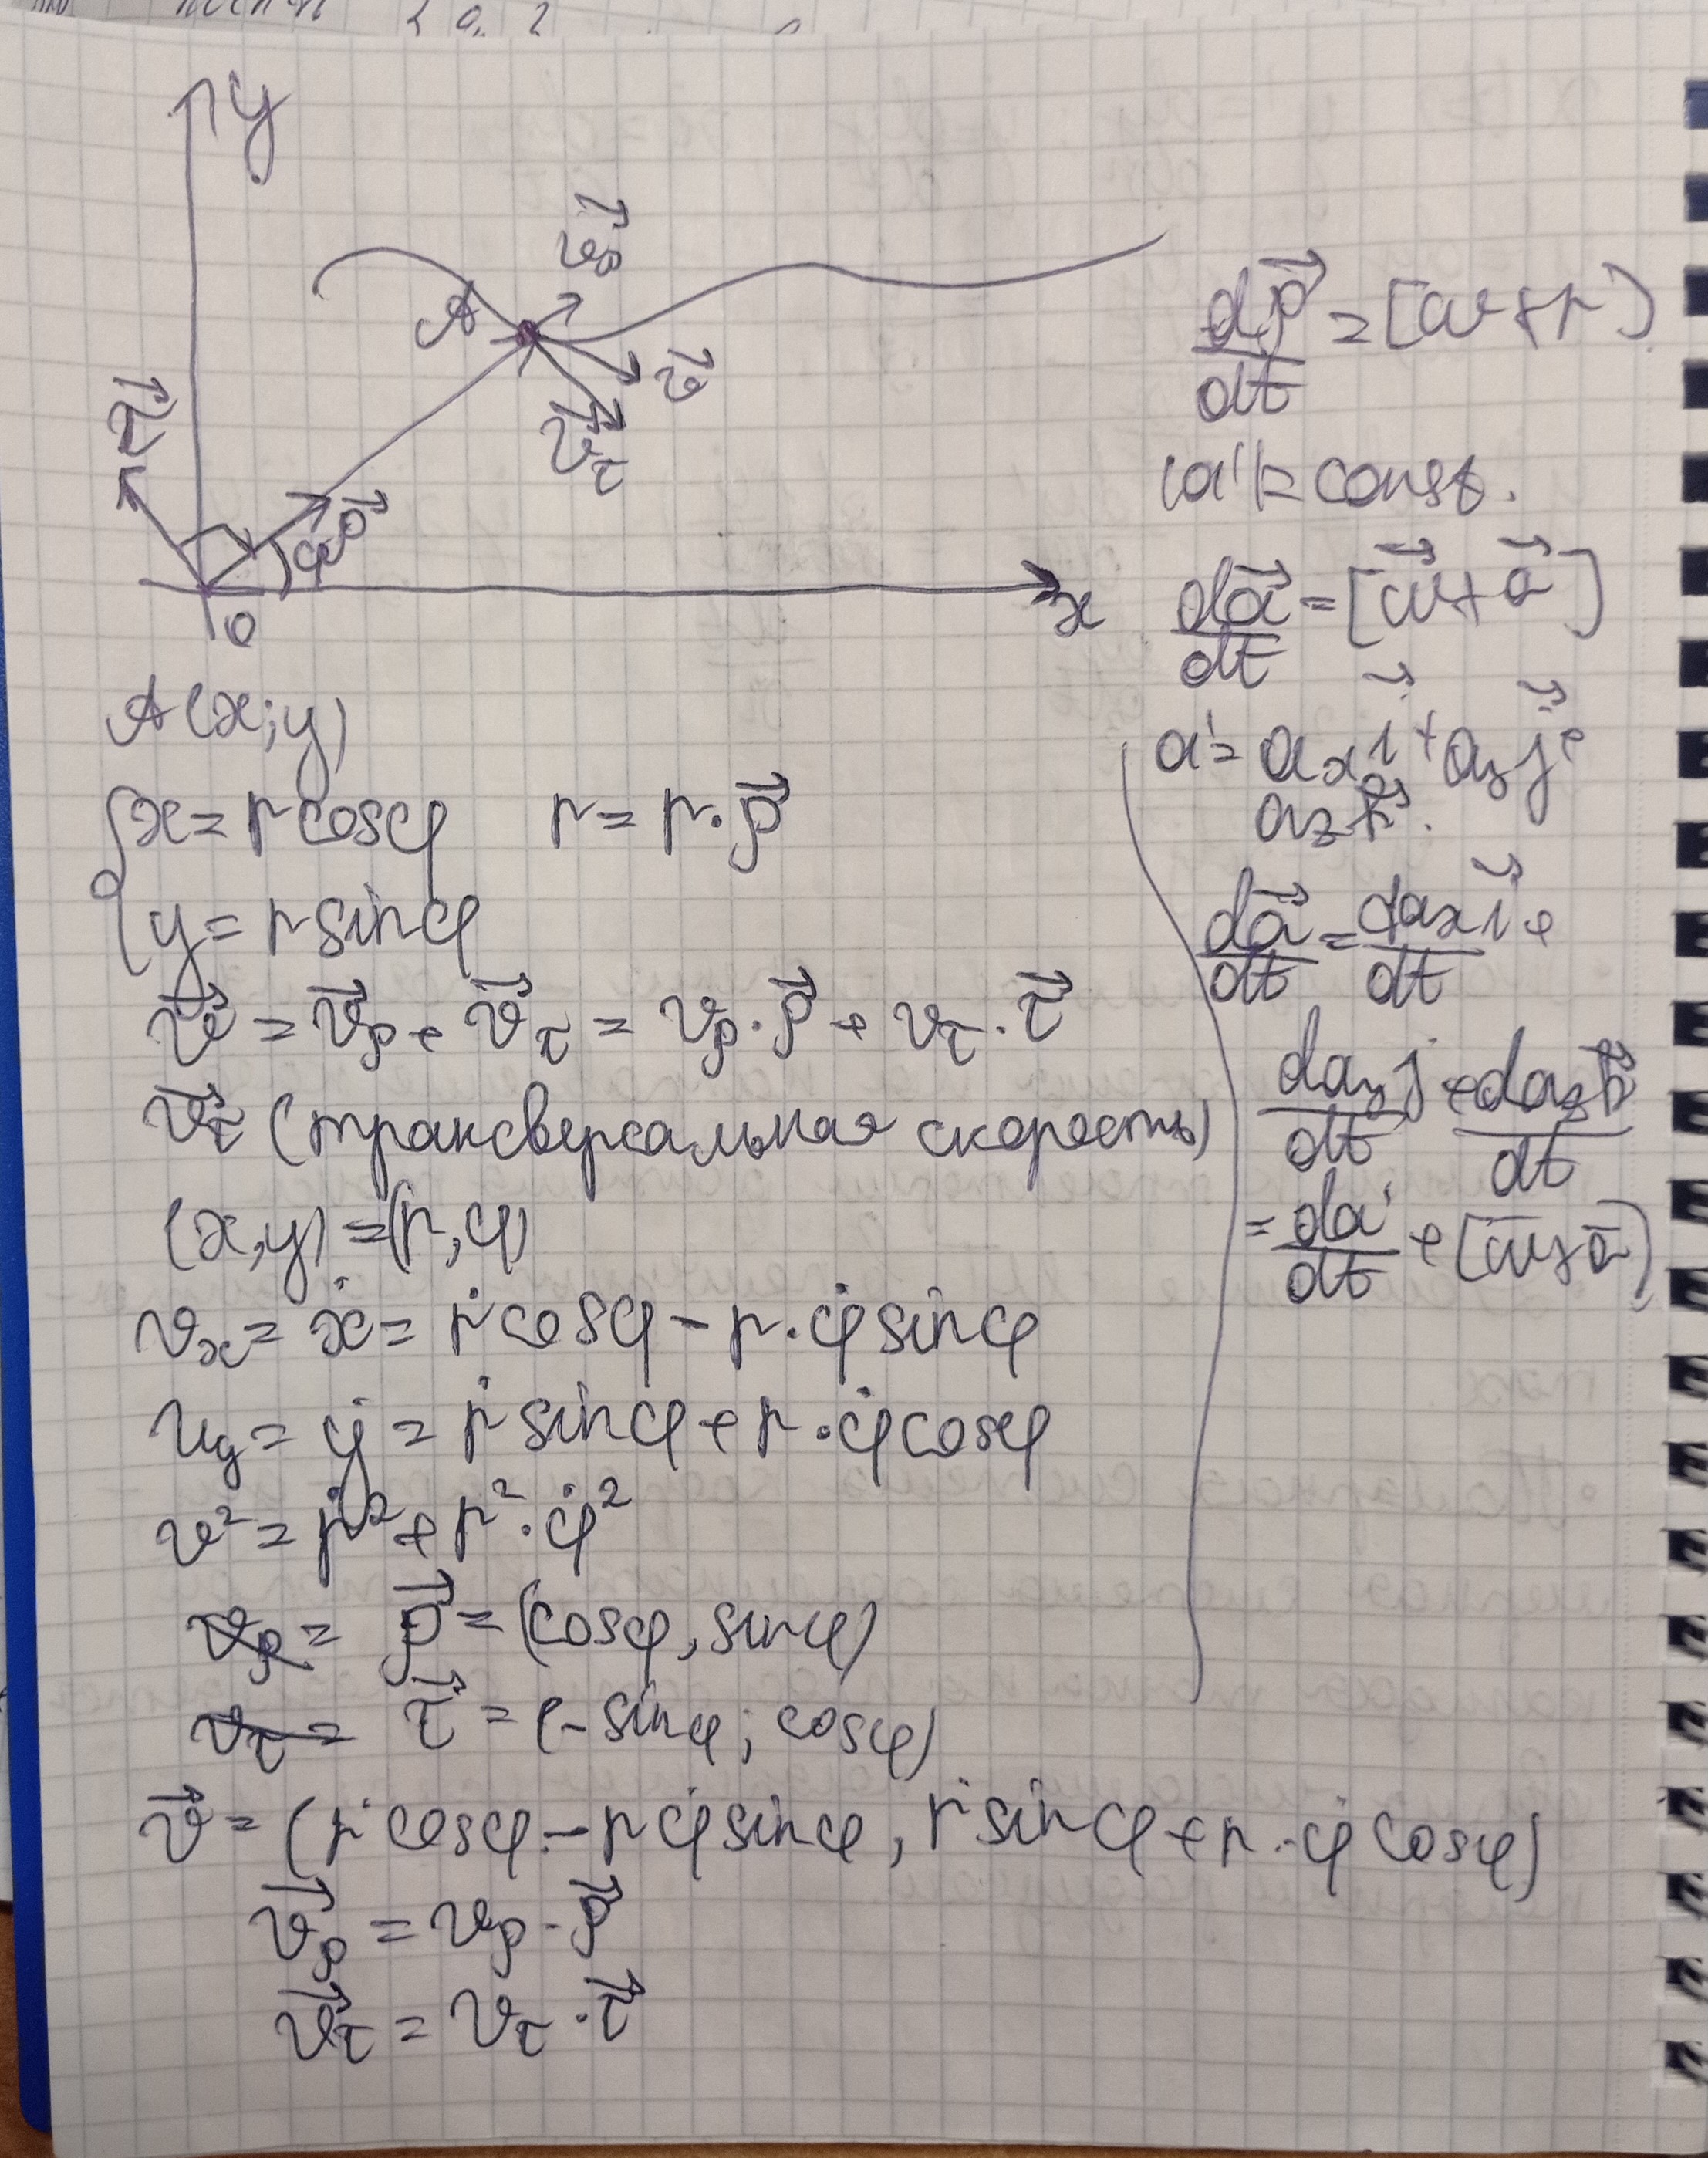 y
v⃗ρ
A
v⃗
v⃗τ
τ⃗
φ ρ⃗
0
x
A(x;y)
{x = r cosφ    r = r·ρ⃗
y = r sinφ
v⃗ = v⃗ρ + v⃗τ = vρ·ρ⃗ + vτ·τ⃗
v⃗τ (трансверсальная скорость)
(x,y) = (r,φ)
vx = ẋ = ṙ cosφ - r·φ̇ sinφ
vy = ẏ = ṙ sinφ + r·φ̇ cosφ
v² = ṙ² + r²·φ̇²
vρ = ρ⃗ = (cosφ, sinφ)
vτ = τ⃗ = (-sinφ; cosφ)
v⃗ = (ṙ cosφ - rφ̇ sinφ, ṙ sinφ + r·φ̇ cosφ)
v⃗ρ = vρ·ρ⃗
v⃗τ = vτ·τ⃗
dρ⃗/dt = [ω×r]
|a| = const.
da⃗/dt = [ω⃗×a⃗]
a⃗ = ax i⃗ + ay j⃗ +
az k⃗.
da⃗/dt = dax i⃗/dt +
day j/dt + daz k⃗/dt
= da'/dt + [ω̅×a̅]